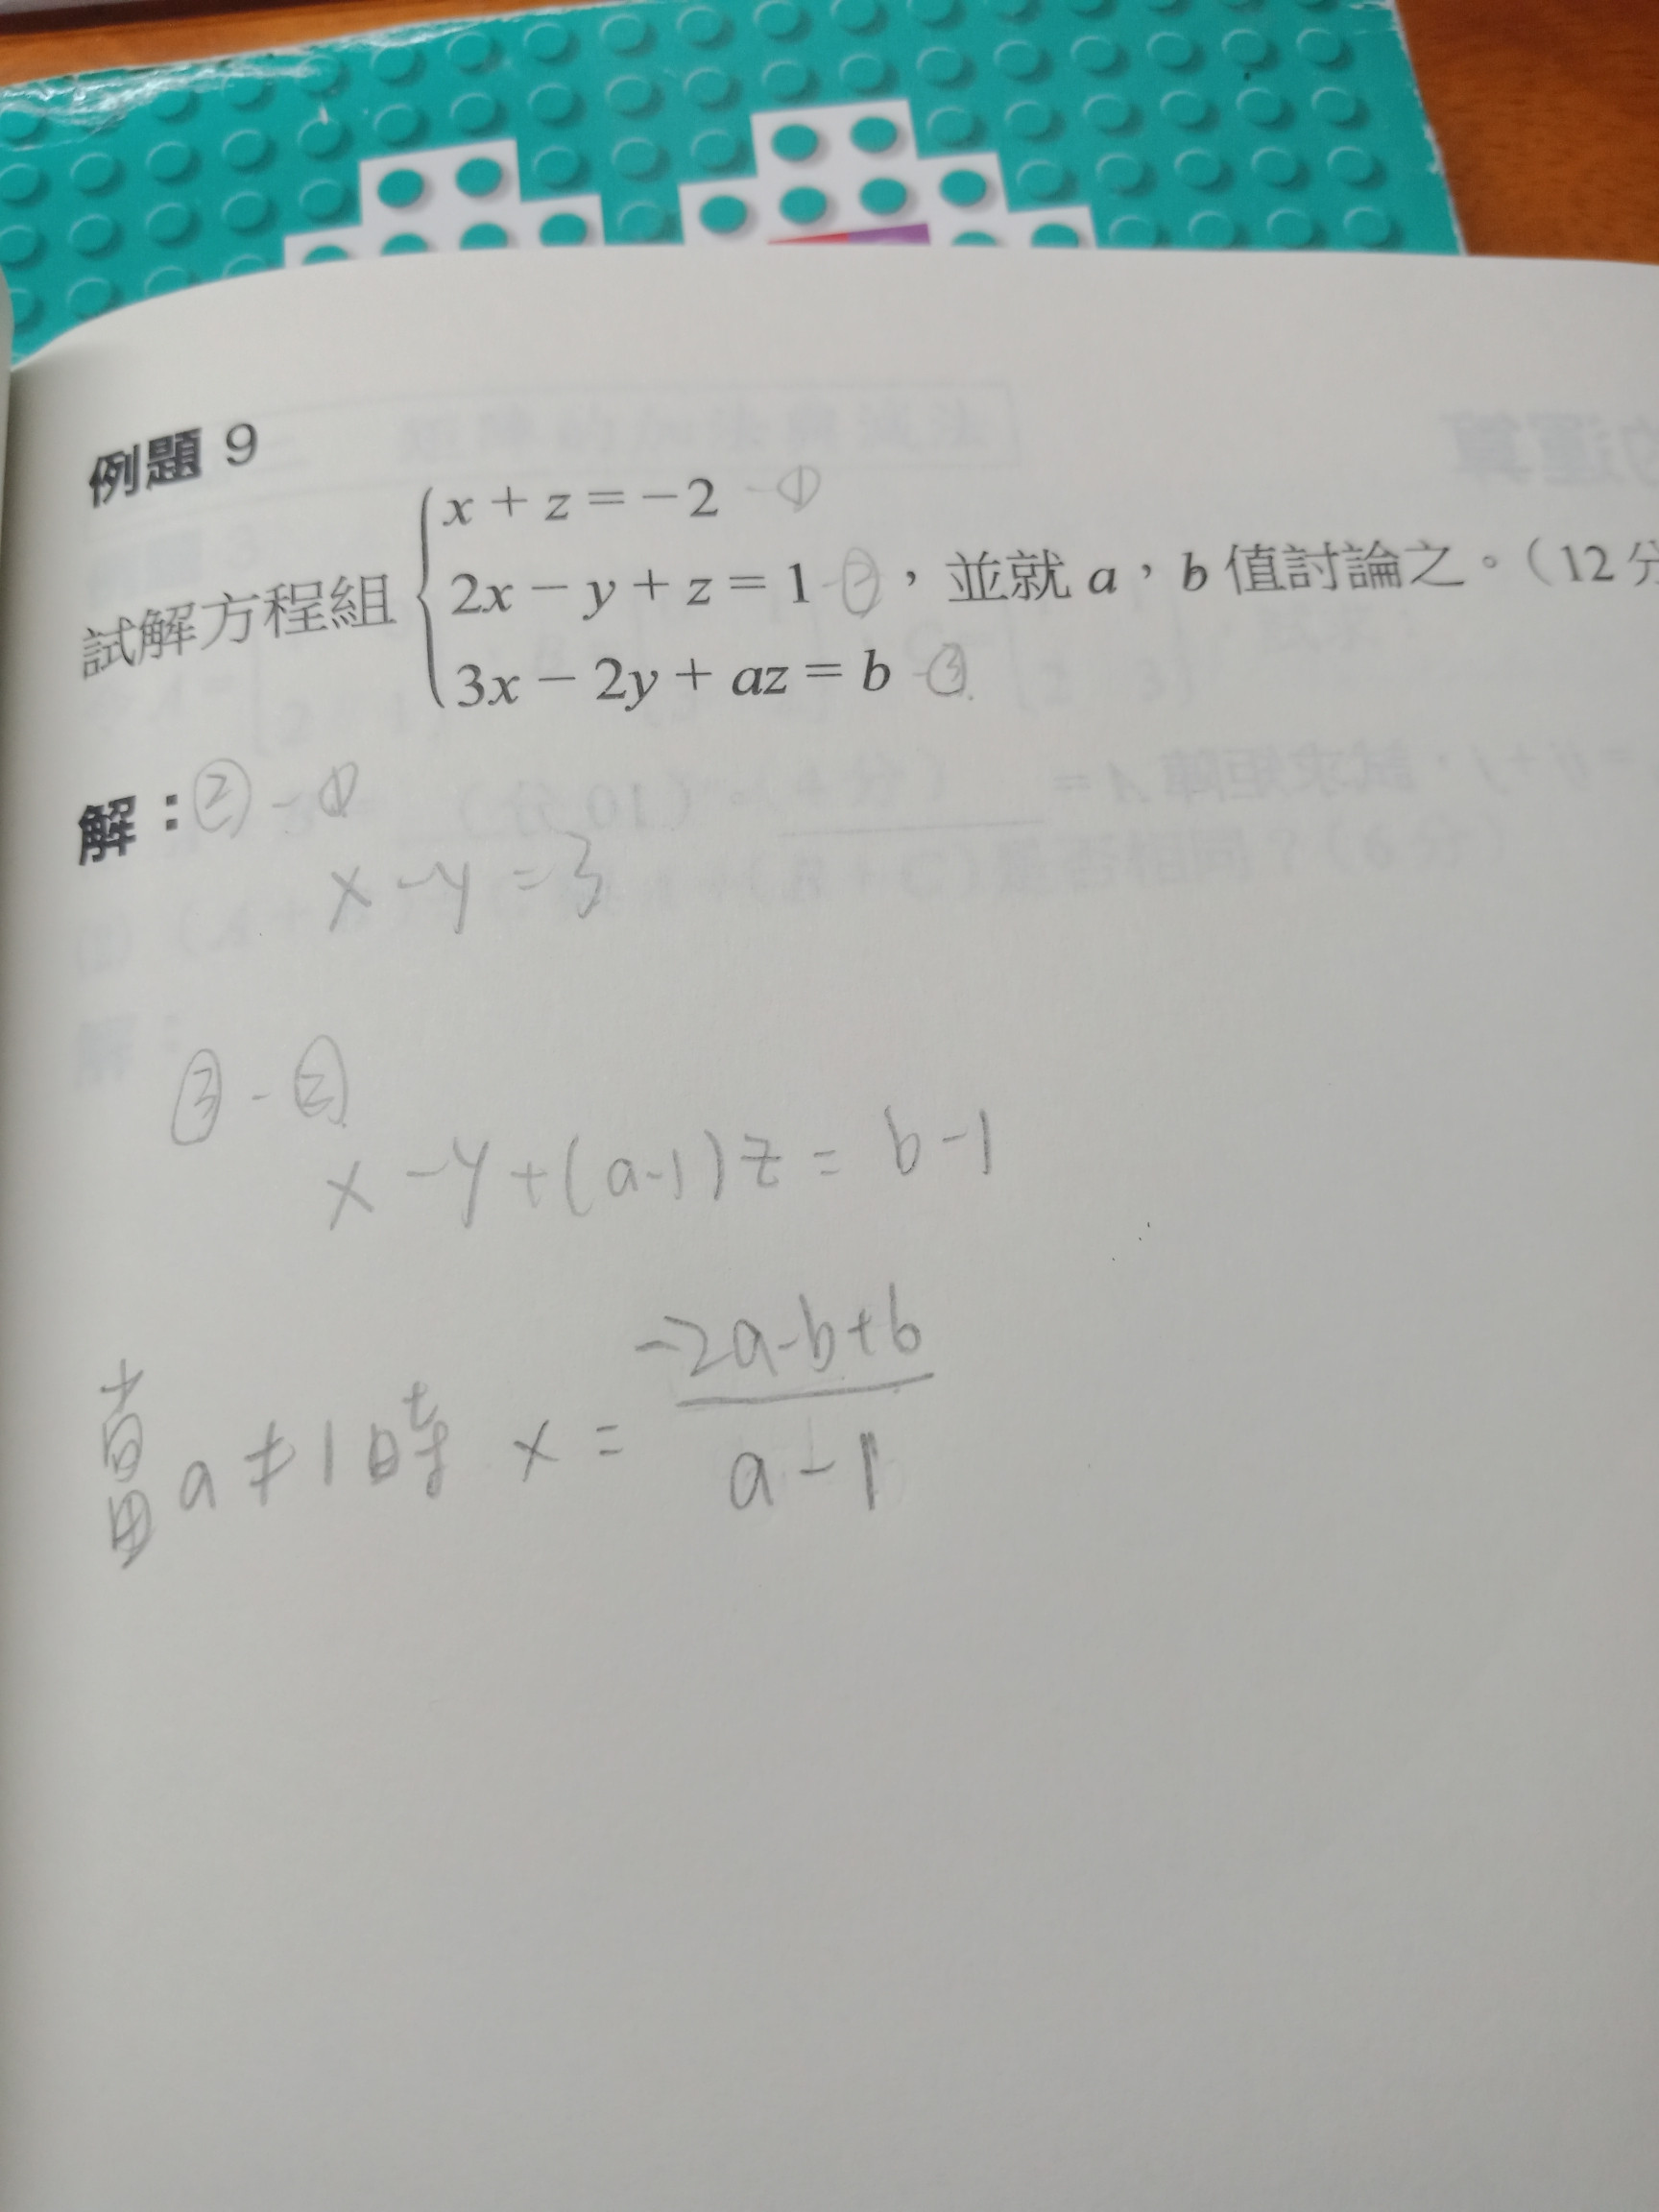 例題 9
x + z = −2 -①
試解方程組 2x − y + z = 1 -② ,並就 a,b 值討論之。(12分
3x − 2y + az = b -③
解:② - ①
x - y = 3
③ - ②
x - y + (a-1) z = b - 1
當 a ≠ 1 時 x = -2a-b+6 / a - 1